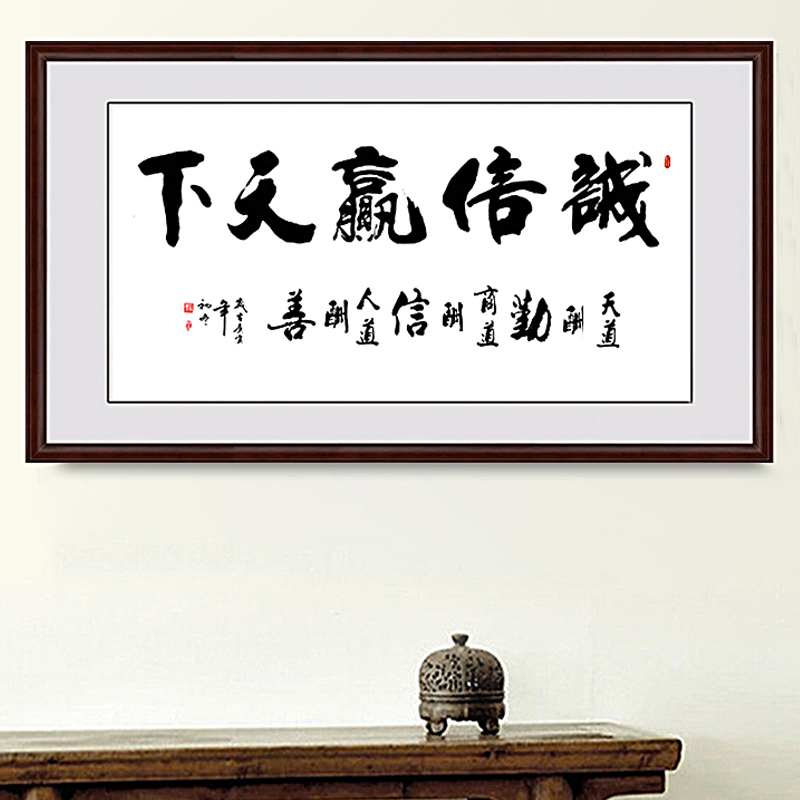 誠信贏天下
天道酬勤 商道酬信 人道酬善